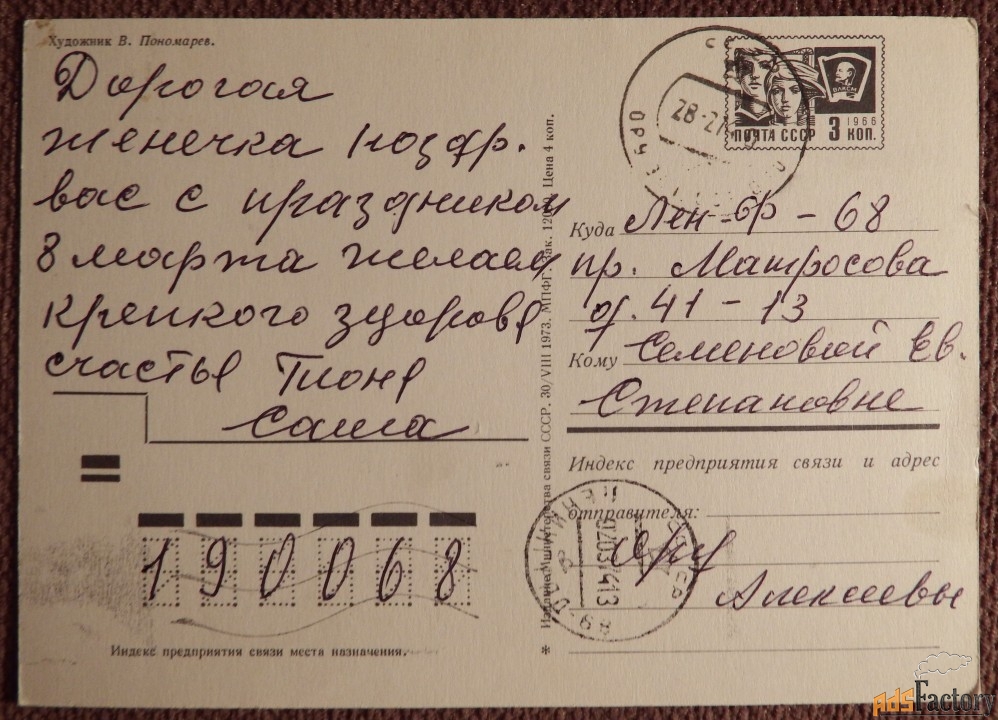 Художник В. Пономарев.
Дорогая
женечка поздр.
вас с праздником
8 марта желаем
крепкого здоровя
счастья Тионя
Саша
190068
Индекс предприятия связи места назначения.
Издание Министерства связи СССР. 30/VIII 1973. МПФГ. Зак. 120 Цена 4 коп.
28-2
ВЛКСМ
1966
ПОЧТА СССР 3 КОП.
Куда Лен-бр - 68
пр. Матросова
д. 41 - 13
Кому Семеновой Ев.
Степановне
Индекс предприятия связи и адрес
отправителя:
ЛЕНИНГРАД
02037413
Алексеевы
*
adsFactory